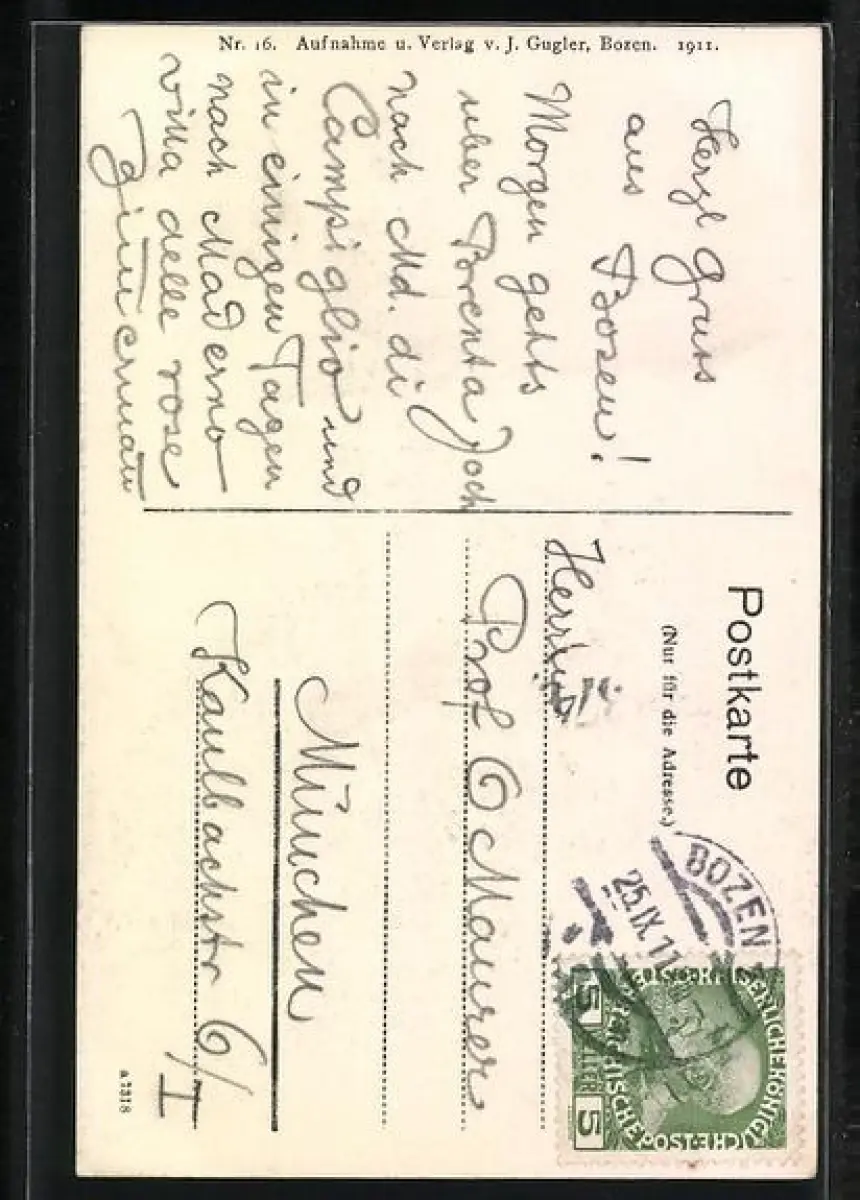 Nr. 16. Aufnahme u. Verlag v. J. Gugler, Bozen. 1911.
Herzl Gruss
aus Bozen!
Morgen gehts
über Brenta Joch
nach Md. di
Campiglio und
in einigen Tagen
nach Maderno
villa delle rose
Postkarte
(Nur für die Adresse.)
BOZEN
25.IX.11
5 5
Prof O Maurer
München
Kaulbachstr 6/I
a 1318